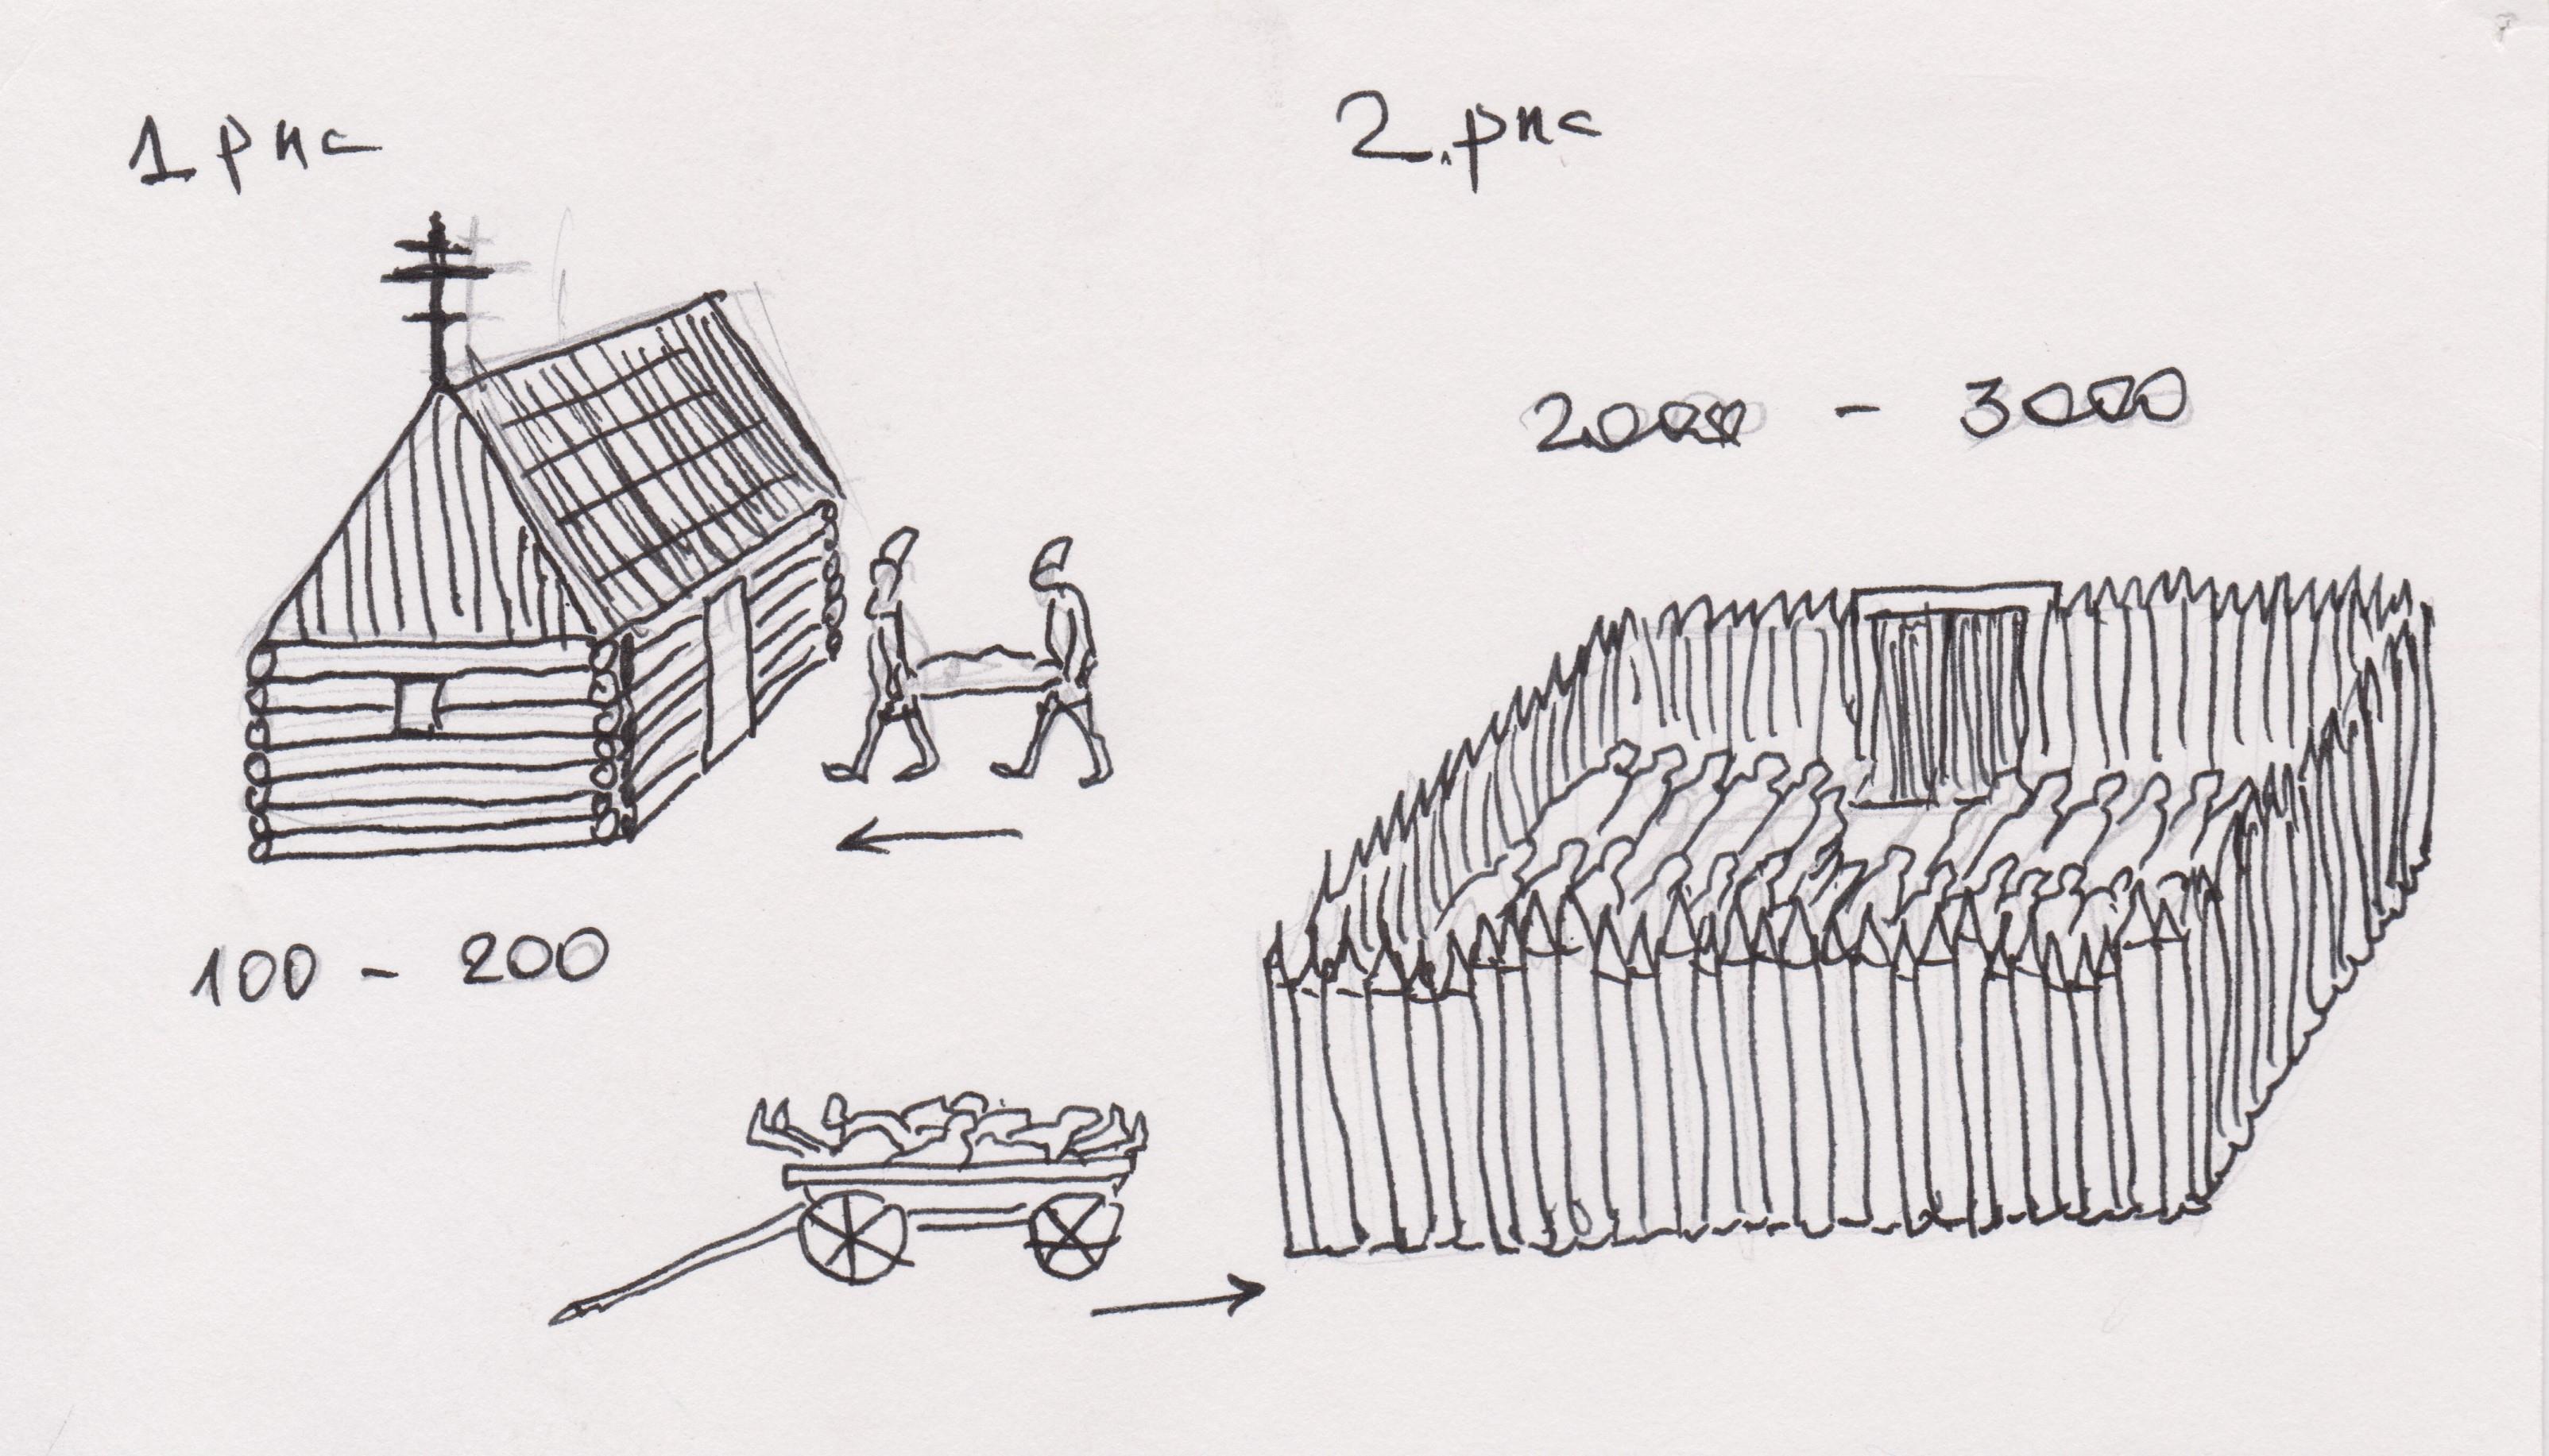 1 рис
2. рис
2000 - 3000
100 - 200